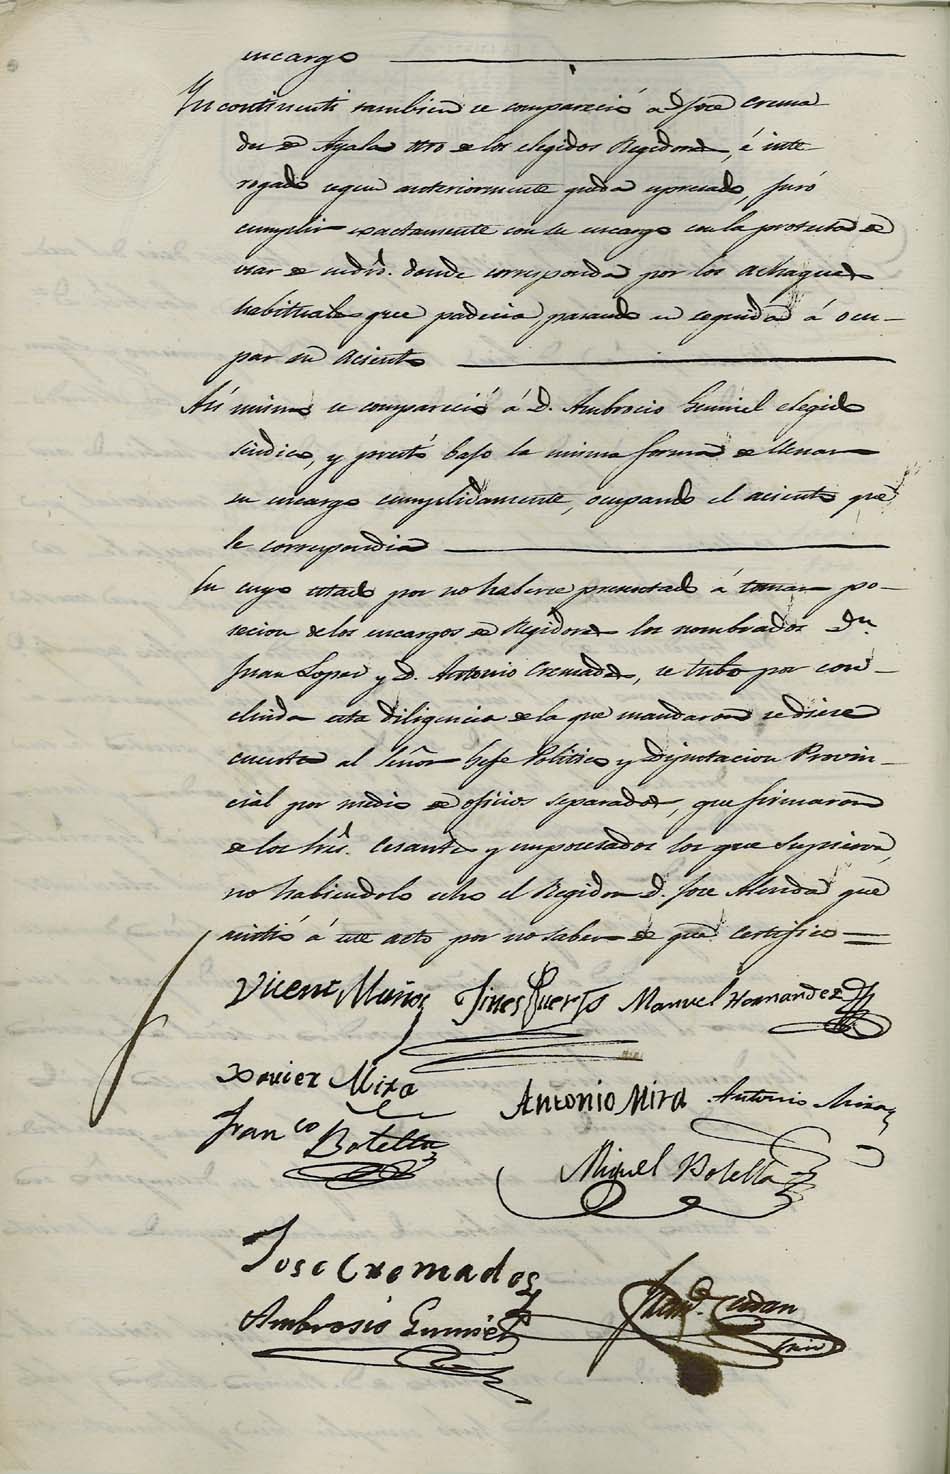 encargo
Yncontinenti tambien se compareció a Dn. Jose Crema
des de Ayala otro de los elegidos Regidores, é inte
rrogado segun anteriormente queda expresado, juró
cumplir exactamente con su encargo con la protesta de
usar de su dro. donde corresponda por los achaques
habituales que padecia, pasando en seguida á ocu-
par su aciento
Asi mismo se compareció á D. Ambrocio Gumiel elegido
Sindico, y prestó bajo la misma forma de llenar
su encargo cumplidamente, ocupando el aciento que
le correspondia
En cuyo estado por no haberse presentado á tomar po-
secion de los encargos de Regidores los nombrados Dn.
Juan Lopez y D. Antonio Cremades, se tubo por con-
cluida esta diligencia de la que mandaron se diese
cuenta al Señor Gefe Politico y Diputacion Provin-
cial por medio de oficios separados, que firmaron
de los Sres. Cesantes y empocesados los que supieron,
no habiendolo echo el Regidor D. Jose Alenda que
asistió á este acto por no saber de que Certifico =
Vicent Muños Jines Puerto Manuel Hernandez
Xavier Mira
Antonio Mira Antonio Mira
Franco Botella
Miguel Botella
Jose Cremades
Ambrosio Gumiel